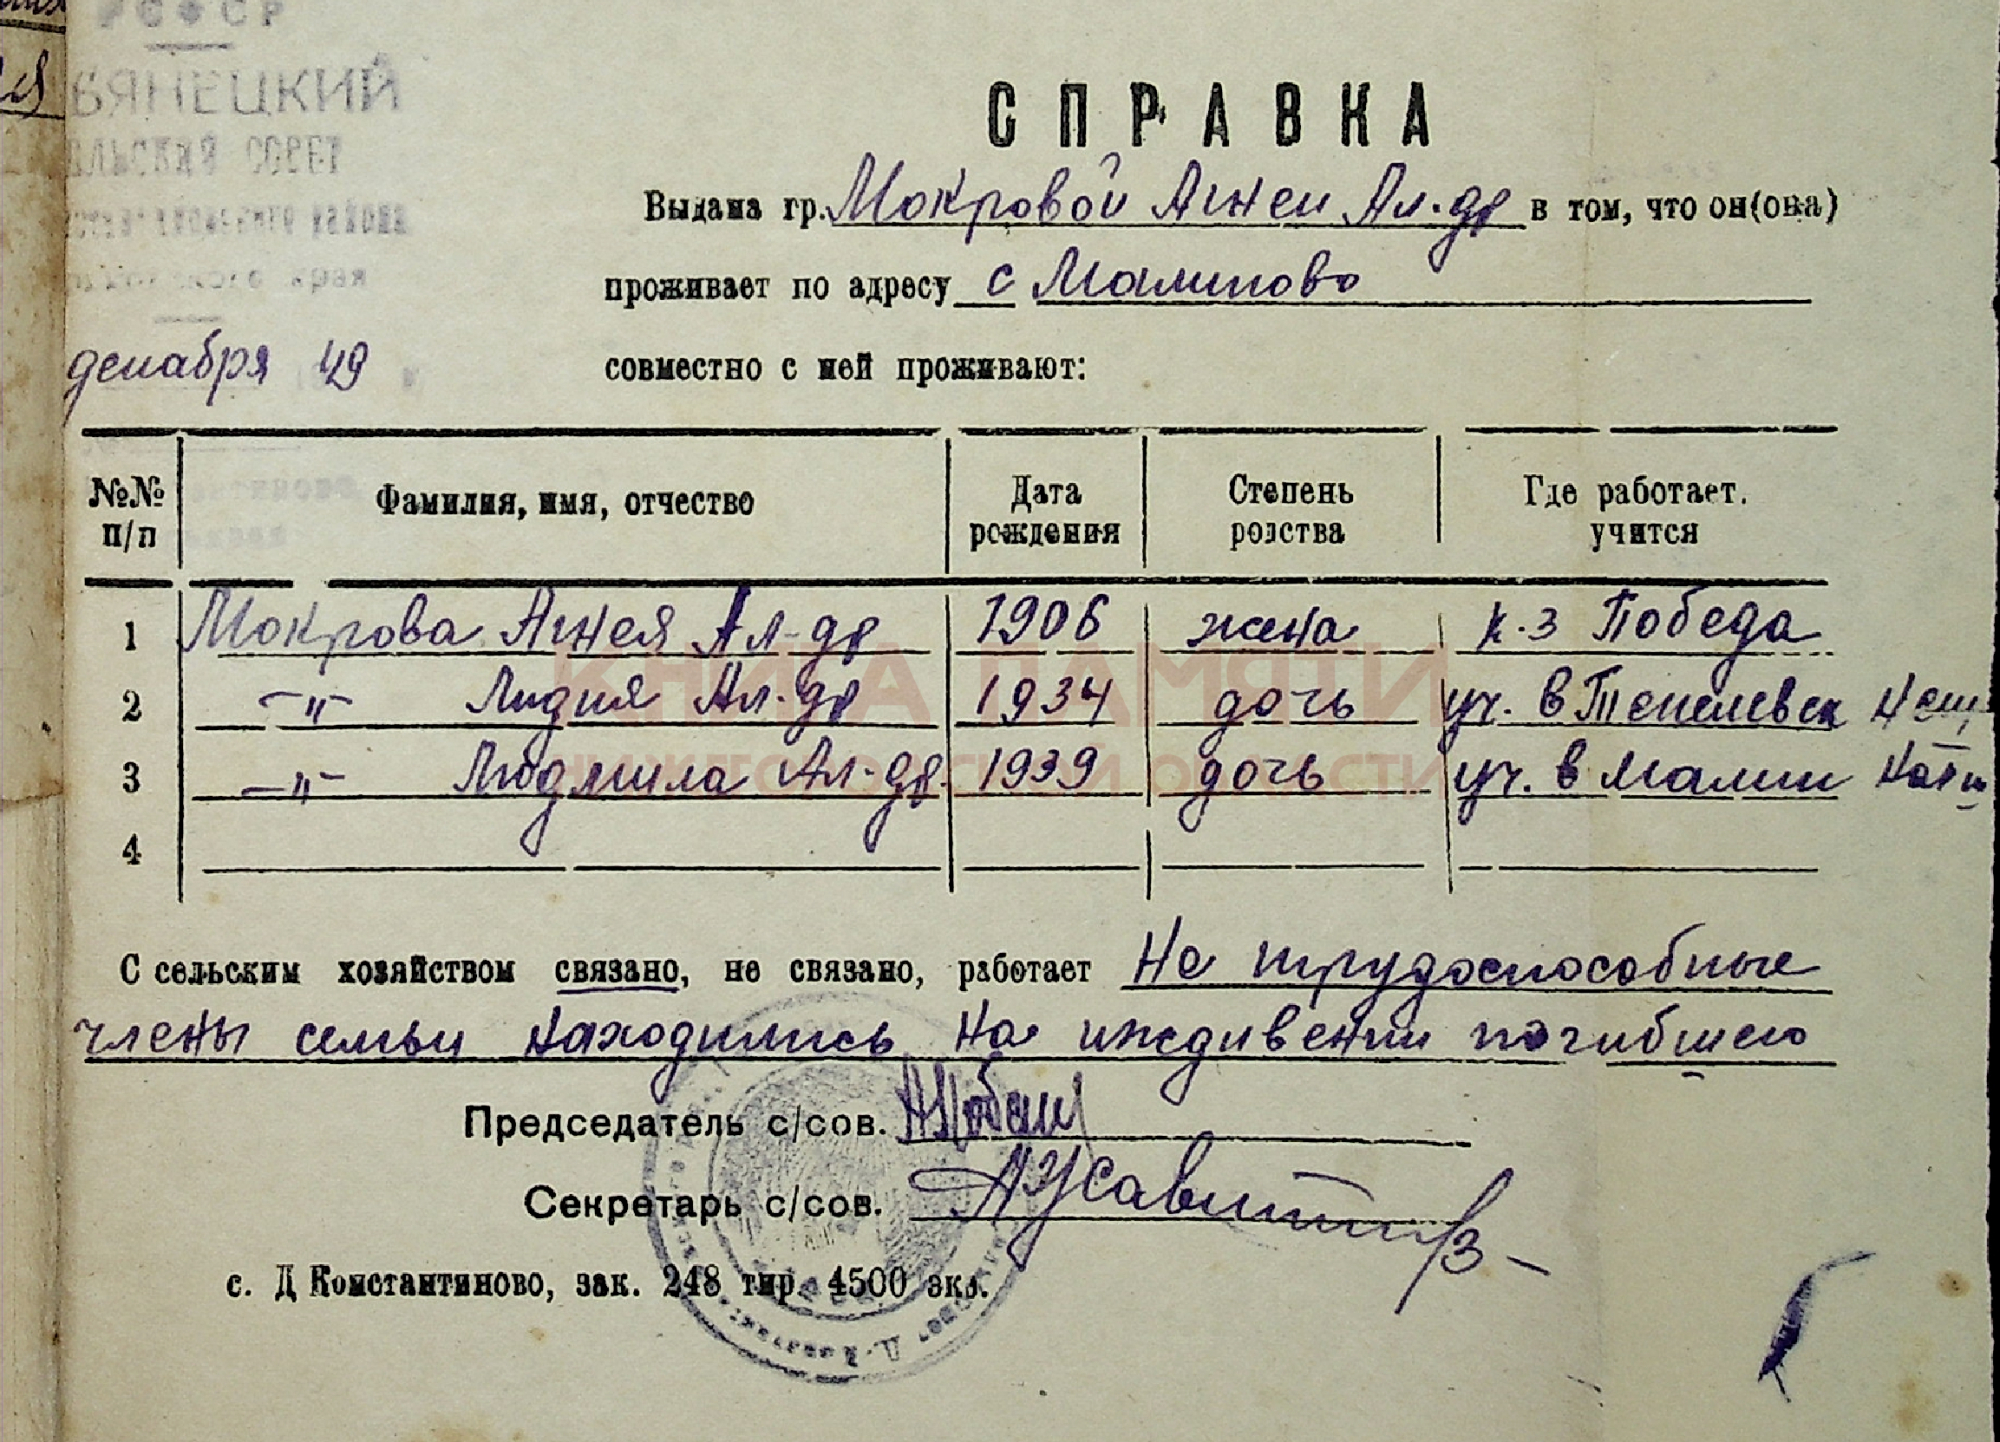 РСФСР
ВЯНЕЦКИЙ
СОВЕТ
района
края
декабря 49
СПРАВКА
Выдана гр. Мокровой Агнеи Ал-др в том, что он(она)
проживает по адресу с Малиново
совместно с ней проживают:
№№ п/п Фамилия, имя, отчество Дата рождения Степень родства Где работает. учится
1 Мокрова Агнея Ал-др 1906 жена к-з Победа
2 -"- Лидия Ал-др 1934 дочь уч. в Тепелевск
3 -"- Людмила Ал-др. 1939 дочь уч. в Малин
4
КНИГА ПАМЯТИ
НИЖЕГОРОДСКОЙ ОБЛАСТИ
С сельским хозяйством связано, не связано, работает Не трудоспособные
члены семьи находились на иждивении погибшего
Председатель с/сов.
Секретарь с/сов.
с. Д Константиново, зак. 248 тир. 4500 экз.